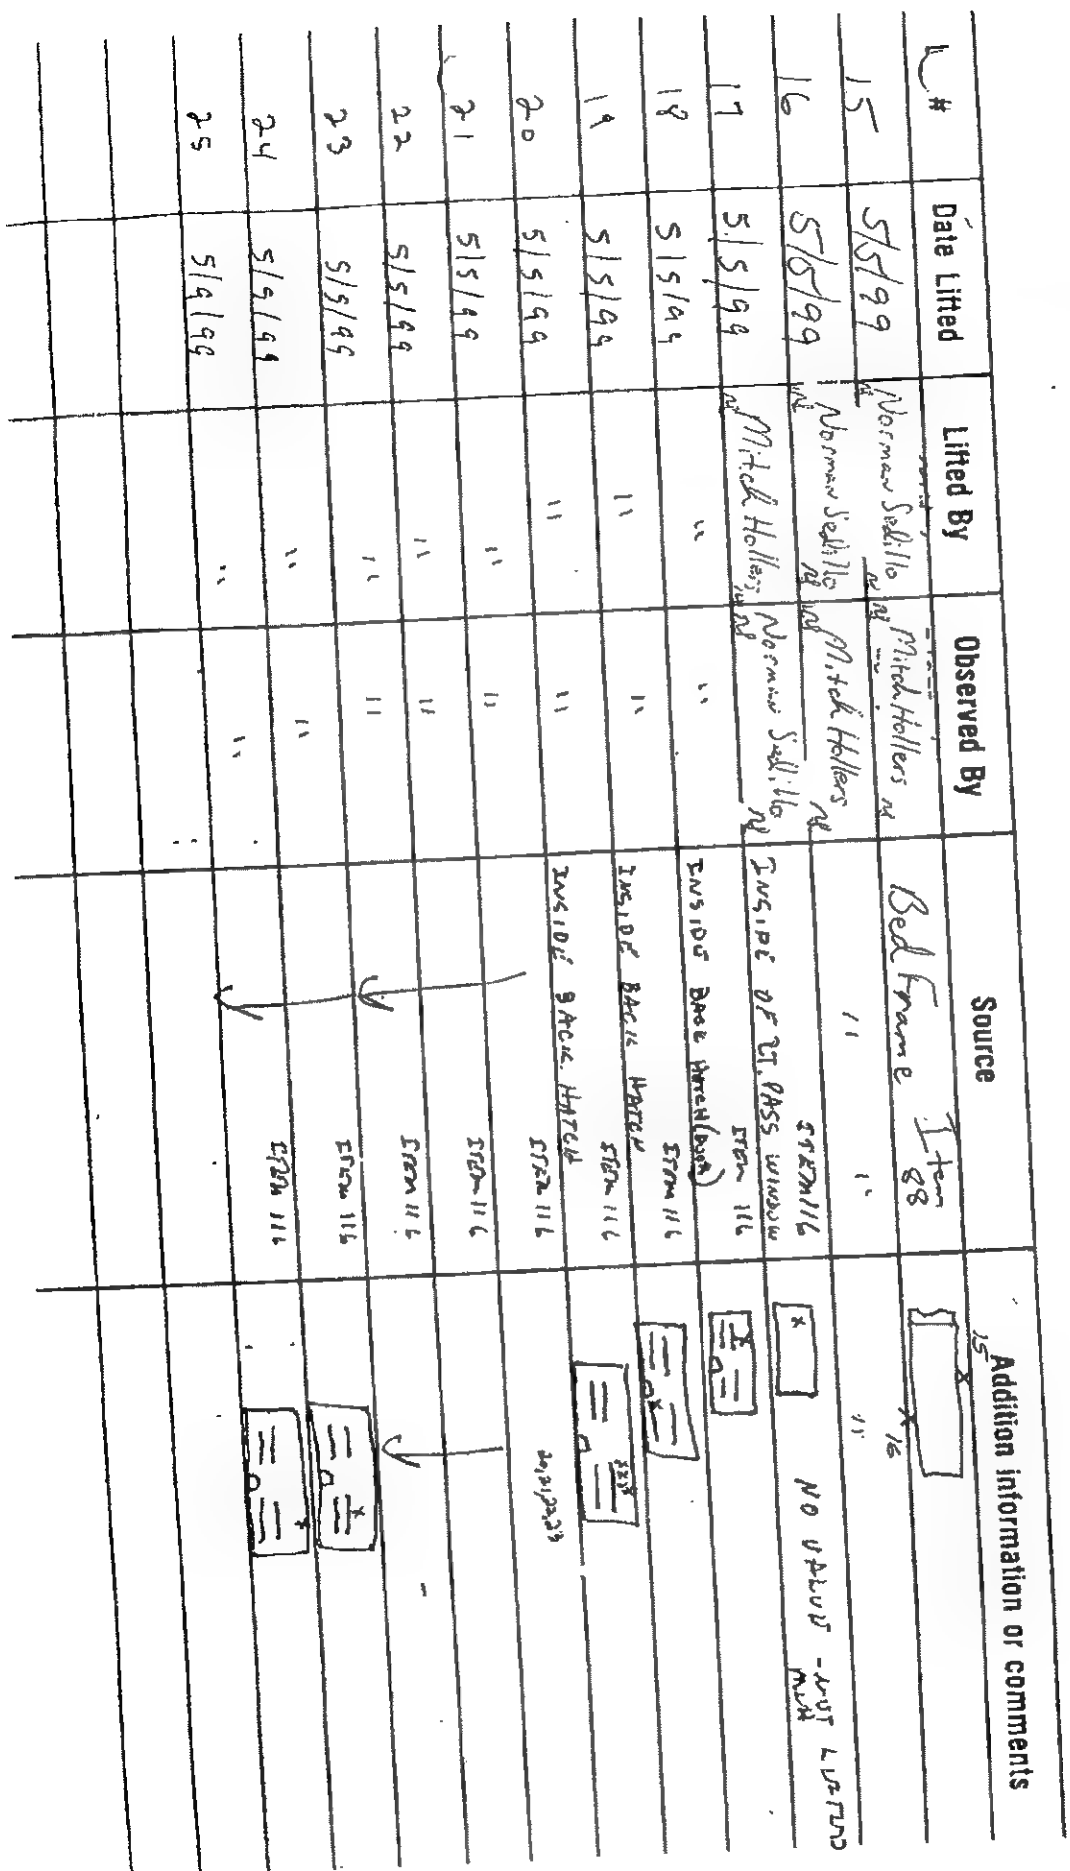 L# Date Lifted Lifted By Observed By Source Addition information or comments
15 5/5/99 Norman Sedillo Mitch Hollers Bed Frame Item 88 15 x x 16
16 5/5/99 Norman Sedillo Mitch Hollers " " "
17 5/5/99 Mitch Hollers Norman Sedillo INSIDE OF RT. PASS WINDOW ITEM 116 x NO VALUE - NOT LIFTED
18 5/5/99 " " INSIDE BACK HATCH ITEM 116 x
19 5/5/99 " " INSIDE BACK HATCH ITEM 116 x
20 5/5/99 " " INSIDE BACK HATCH ITEM 116 20,21,22,23
21 5/5/99 " " ITEM 116
22 5/5/99 " " ITEM 116
23 5/5/99 " " ITEM 116
24 5/5/99 " " ITEM 116 x
25 5/5/99 " " ITEM 116 x